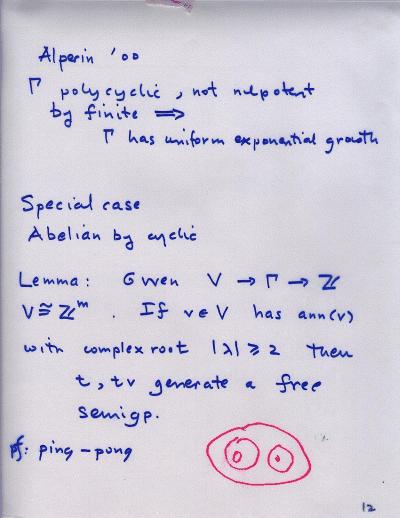 Alperin '00
Γ polycyclic, not nilpotent
by finite ⟹
Γ has uniform exponential growth
Special case
Abelian by cyclic
Lemma: Given V → Γ → ℤ
V ≅ ℤ^m. If v ∈ V has ann(v)
with complex root |λ| ≥ 2 then
t, tv generate a free
semigp.
pf: ping-pong
12